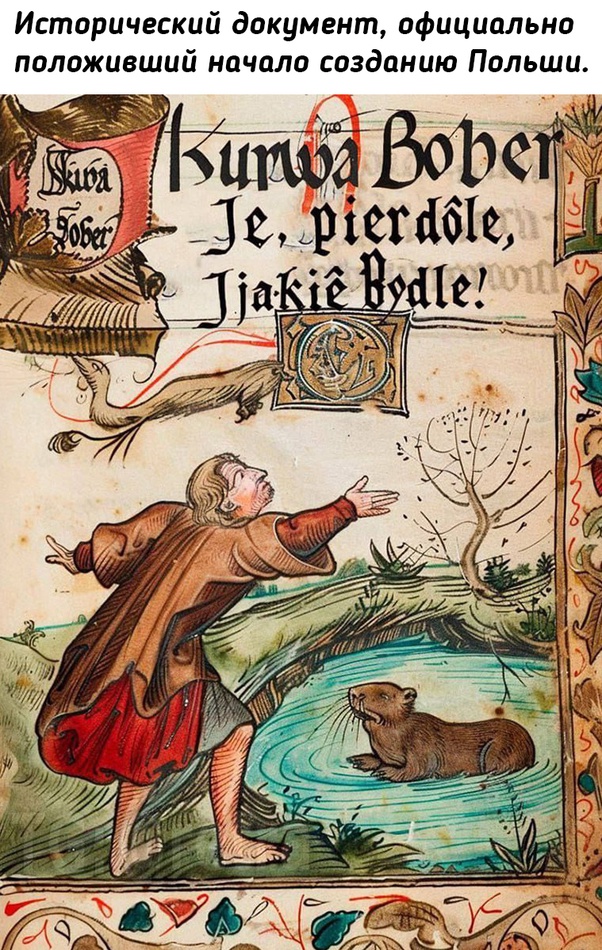 Исторический документ, официально
положивший начало созданию Польши.
Kurwa Bober
Je, pierdôle,
Jjakiê Bydle!